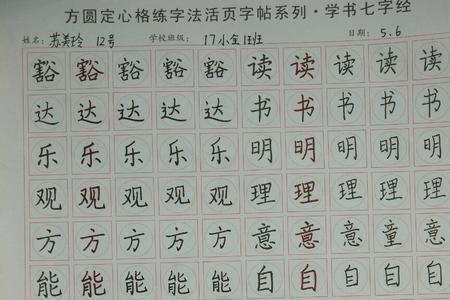 方圆定心格练字法活页字帖系列·学书七字经
姓名: 苏美玲 12号 学校班级: 17小 班 日期: 5.6
豁 豁 豁 豁 豁 读 读 读 读 读
达 达 达 达 达 书 书 书 书 书
乐 乐 乐 乐 乐 明 明 明 明 明
观 观 观 观 观 理 理 理 理 理
方 方 方 方 方 意 意 意 童 意
能 能 能 能 能 自 自 自 自 自